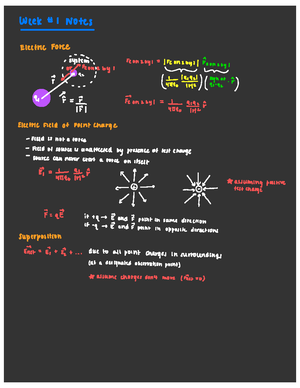 Week #1 Notes
Electric Force
system
F⃗ on 2 by 1 = |F⃗ on 2 by 1| F̂ on 2 by 1
r̂ = r⃗/|r⃗|
(1/4πε₀ |q₁q₂|/|r|²)
F⃗ on 2 by 1 = 1/4πε₀ q₁q₂/|r|² r̂
Electric Field of Point Charge
- Field is not a force
- Field of source is unaffected by presence of test charge
- Source can never exert a force on itself
E⃗₁ = 1/4πε₀ q₁/|r|² r̂
* assuming positive
test charge
F⃗ = qE⃗
if +q → E⃗ and F⃗ point in same direction
if -q → E⃗ and F⃗ point in opposite directions
Superposition
E⃗net = E⃗₁ + E⃗₂ + ... due to all point charges in surroundings
(at a designated observation point)
* assume charges don't move